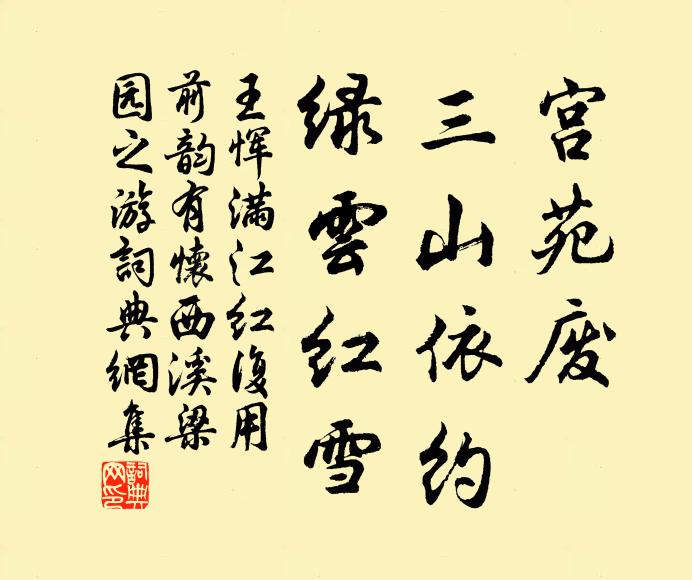 宫苑废
三山依约
绿雲红雪
王恽满江红復用
前韵有懷西溪梁
园之游詞典網集
詞典网印